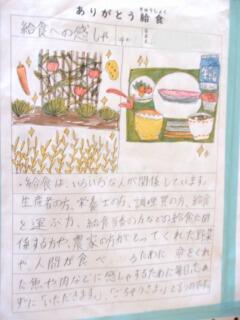 ありがとう給食
きゅうしょく
給食への感しゃ
・給食は、いろいろな人が関係しています。
生産者の方、栄養士の方、調理員の方、給食
を運ぶ方、給食当番の方などの給食に関
係する方や、農家の方がとってくれた野菜
や、人間が食べるために命をくれ
た魚や肉などに感しゃするために毎日
ずに「いただきます」、「ごちそうさま」